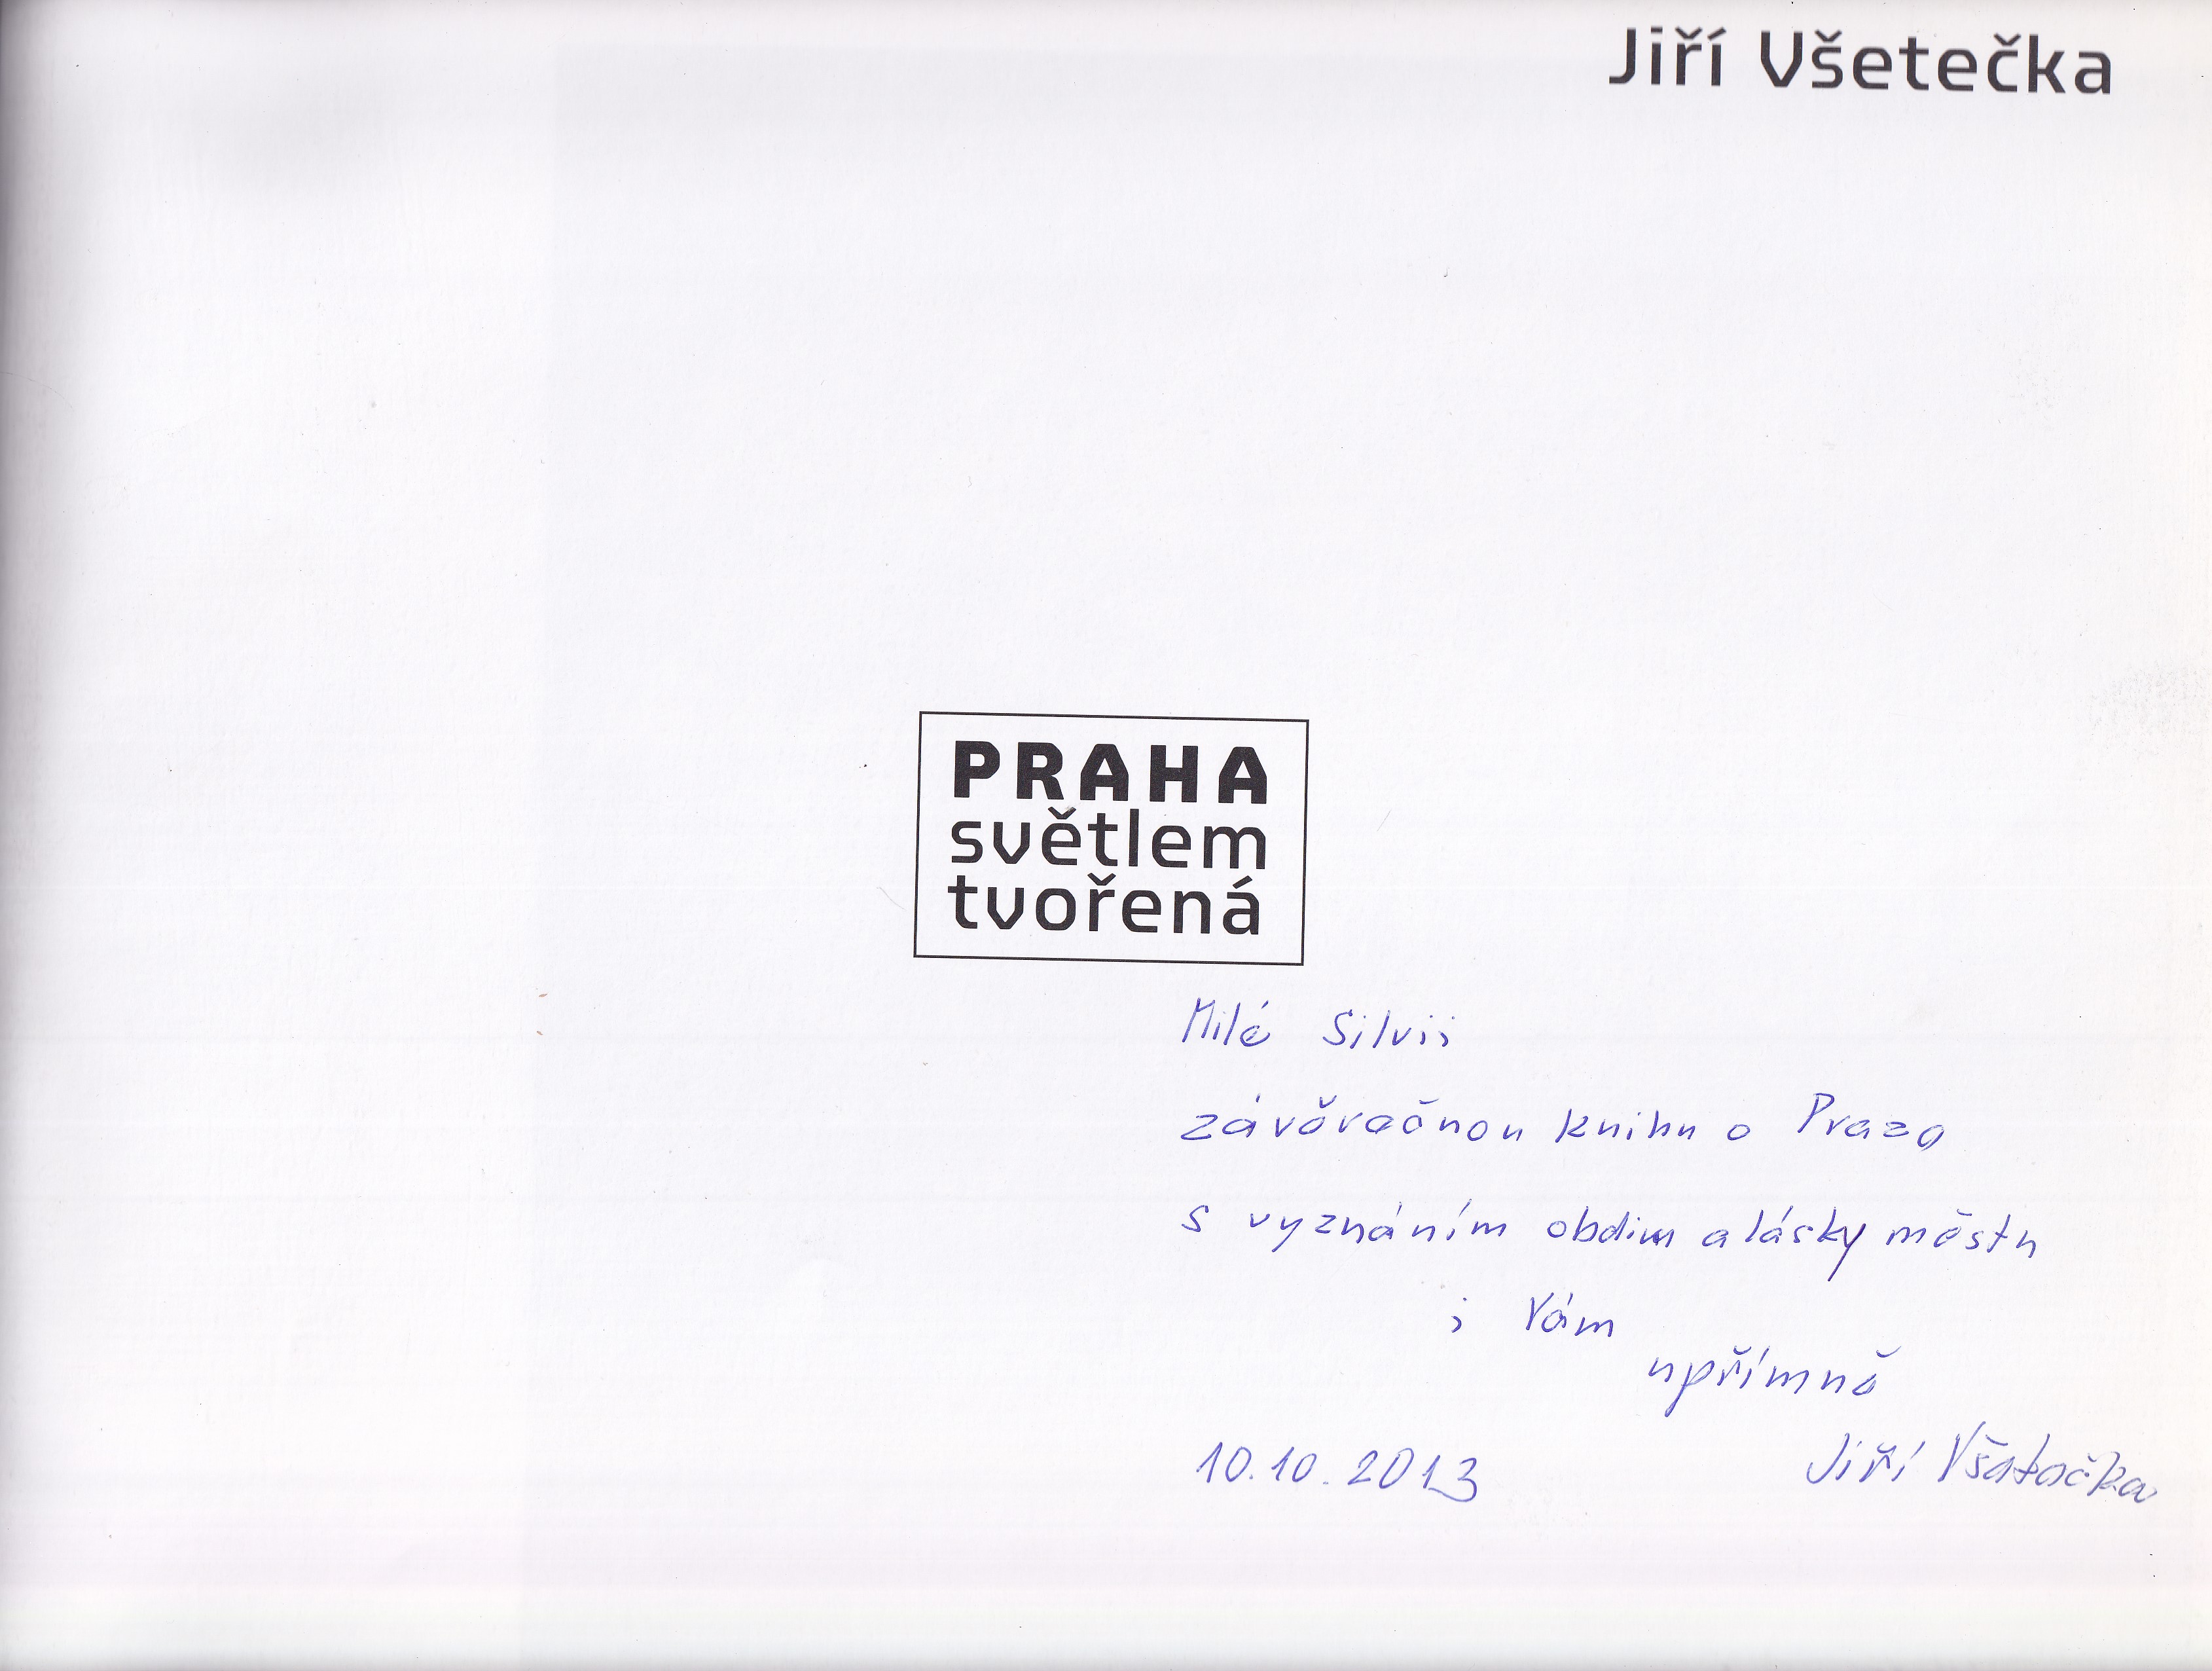 Jiří Všetečka
PRAHA
světlem
tvořená
Milé Silvii
závěrečnou knihu o Praze
s vyznáním obdivu a lásky městu
i Vám
upřímně
10.10.2013
Jiří Všetečka